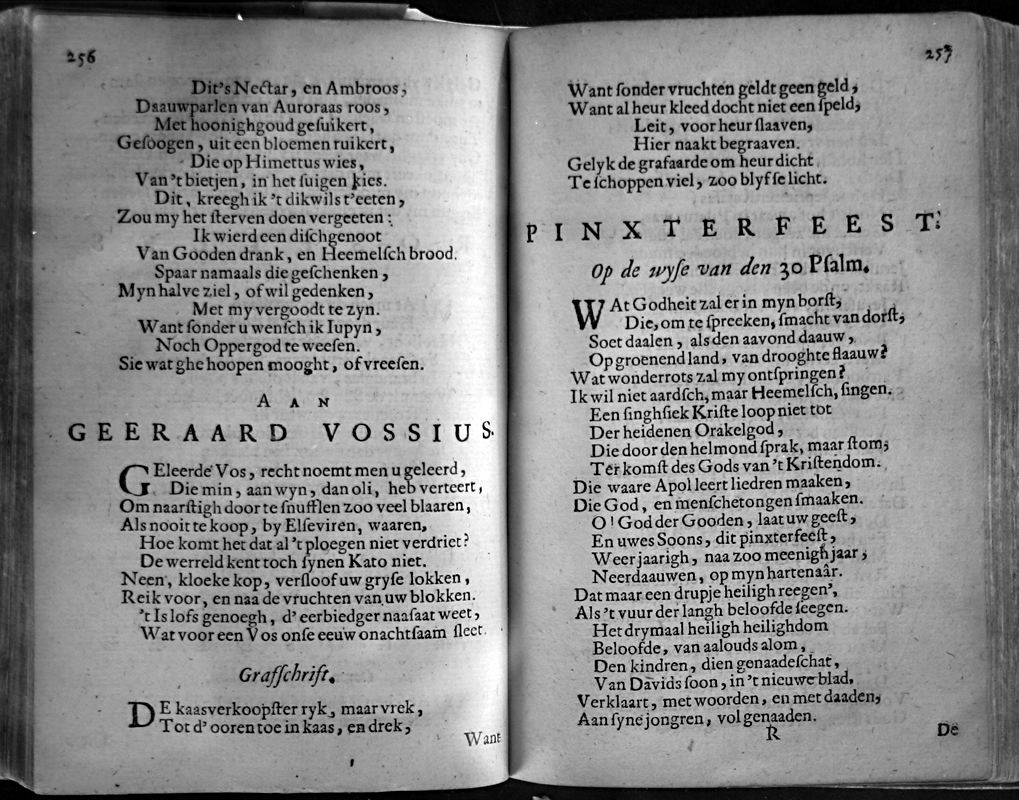 256
Dit's Nectar, en Ambroos,
Daauwparlen van Auroraas roos,
Met hoonighgoud gesuikert,
Gesoogen, uit een bloemen ruikert,
Die op Himettus wies,
Van 't bietjen, in het suigen kies.
Dit, kreegh ik 't dikwils t'eeten,
Zou my het sterven doen vergeeten:
Ik wierd een dischgenoot
Van Gooden drank, en Heemelsch brood.
Spaar namaals die geschenken,
Myn halve ziel, of wil gedenken,
Met my vergoodt te zyn.
Want sonder u wensch ik Iupyn,
Noch Oppergod te weesen.
Sie wat ghe hoopen mooght, of vreesen.
AAN
GEERAARD VOSSIUS.
GEleerde Vos, recht noemt men u geleerd,
Die min, aan wyn, dan oli, heb verteert,
Om naarstigh door te snufflen zoo veel blaaren,
Als nooit te koop, by Elseviren, waaren,
Hoe komt het dat al 't ploegen niet verdriet?
De werreld kent toch synen Kato niet.
Neen, kloeke kop, versloof uw gryse lokken,
Reik voor, en naa de vruchten van uw blokken.
't Is lofs genoegh, d' eerbiedger naasaat weet,
Wat voor een Vos onse eeuw onachtsaam sleet.
Grafschrift.
DE kaasverkoopster ryk, maar vrek,
Tot d' ooren toe in kaas, en drek,
Want
257
Want sonder vruchten geldt geen geld,
Want al heur kleed docht niet een speld,
Leit, voor heur slaaven,
Hier naakt begraaven.
Gelyk de grafaarde om heur dicht
Te schoppen viel, zoo blyf se licht.
PINXTERFEEST.
Op de wyse van den 30 Psalm.
WAt Godheit zal er in myn borst,
Die, om te spreeken, smacht van dorst,
Soet daalen, als den aavond daauw,
Op groenend land, van drooghte flaauw?
Wat wonderrots zal my ontspringen?
Ik wil niet aardsch, maar Heemelsch, singen.
Een singhsiek Kriste loop niet tot
Der heidenen Orakelgod,
Die door den helmond sprak, maar stom,
Ter komst des Gods van 't Kristendom.
Die waare Apol leert liedren maaken,
Die God, en menschetongen smaaken.
O! God der Gooden, laat uw geest,
En uwes Soons, dit pinxterfeest,
Weer jaarigh, naa zoo meenigh jaar,
Neerdaauwen, op myn hartenaâr.
Dat maar een drupje heiligh reegen',
Als 't vuur der langh beloofde seegen.
Het drymaal heiligh heilighdom
Beloofde, van aalouds alom,
Den kindren, dien genaadeschat,
Van Davids soon, in 't nieuwe blad,
Verklaart, met woorden, en met daaden,
Aan syne jongren, vol genaaden.
R
De